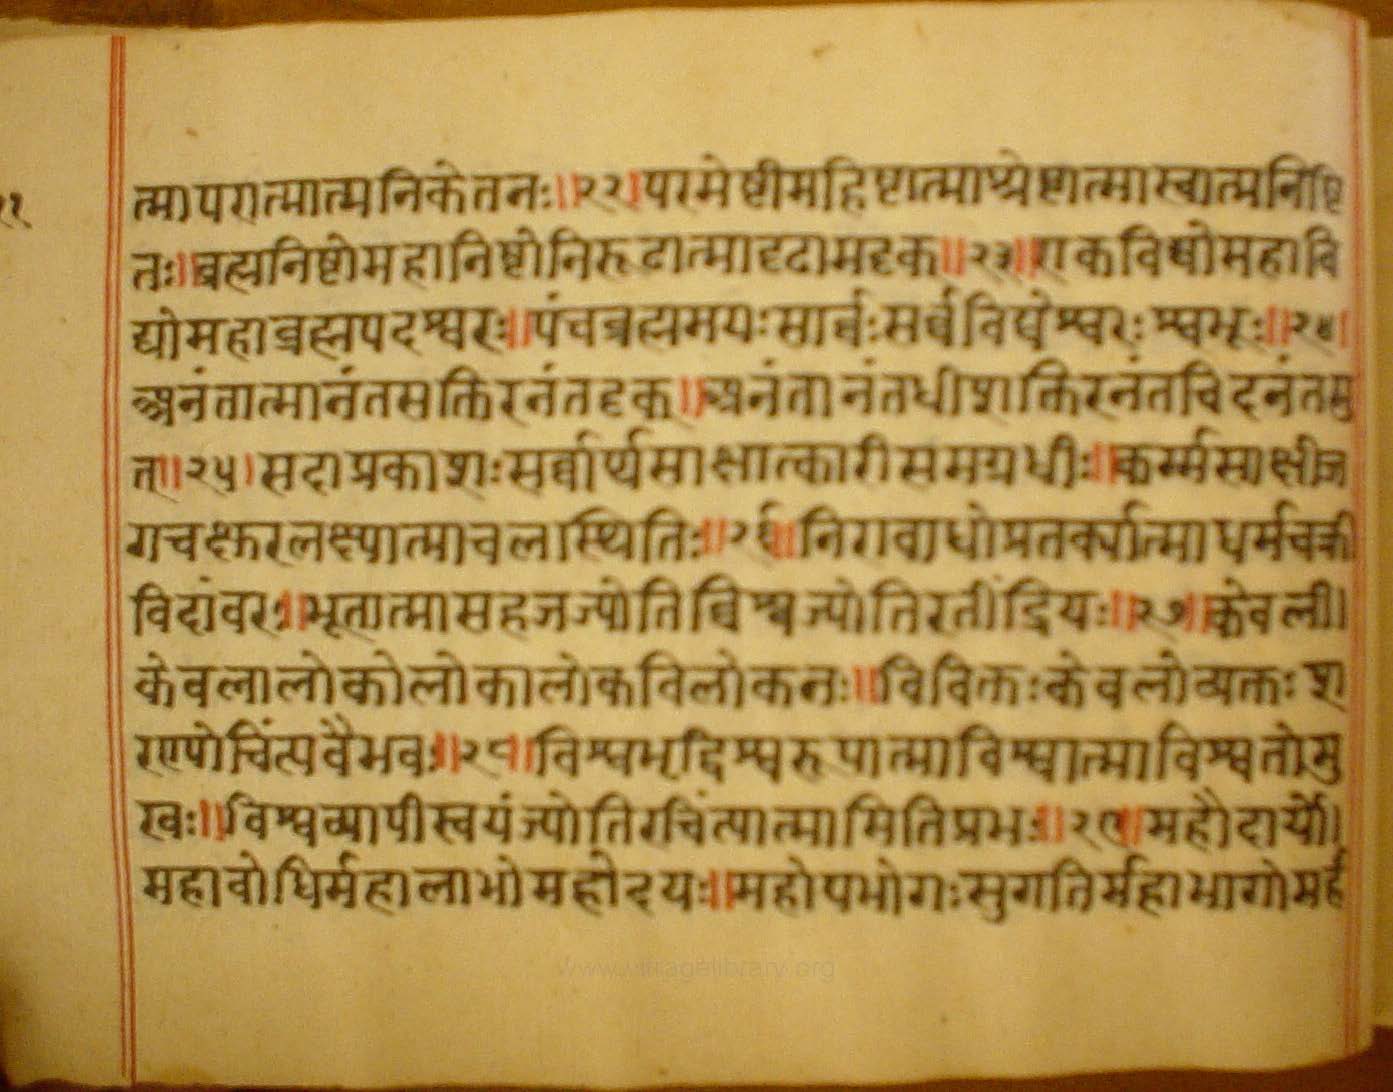 ११
त्मापरात्मात्मनिकेतनः॥२२॥परमेष्टीमहिष्टात्माश्रेष्टात्मास्वात्मनिष्टि
तः॥ब्रह्मनिष्टोमहानिष्टोनिरूढात्मादृढात्मदृक्॥२३॥एकविद्योमहावि
द्योमहाब्रह्मपदेश्वरः॥पंचब्रह्ममयःसार्वःसर्वविद्येश्वरः श्वभूः॥२४॥
अनंतात्मानंतसक्तिरनंतदृक्॥अनंतानंतधीशक्तिरनंतविदनंतमु
त्॥२५।सदाप्रकाशःसर्वार्थसाक्षात्कारीसमग्रधीः॥कर्म्मसाक्षीज
गचक्षुरलक्ष्यात्माचलास्थितिः॥२६॥निरावाधोप्रतर्क्यात्माधर्मचक्री
विदांवरः॥भूतात्मासहजज्योतिर्विश्वज्योतिरतींद्रियः॥२७॥केवली।
केवलालोकोलोकालोकविलोकनः॥विविक्तःकेवलोव्यक्तः श
रण्योचिंत्यवैभवः॥२८॥विश्वभृद्विश्वरूपात्माविश्वात्माविश्वतोमु
खः॥विश्वव्यापीस्वयंज्योतिरचिंत्यात्मामितिप्रभः॥२९॥महौदार्यो।
महावोधिर्महालाभोमहोदयः॥महोपभोगःसुगतिर्महाभागोमह
www.vitragelibrary.org